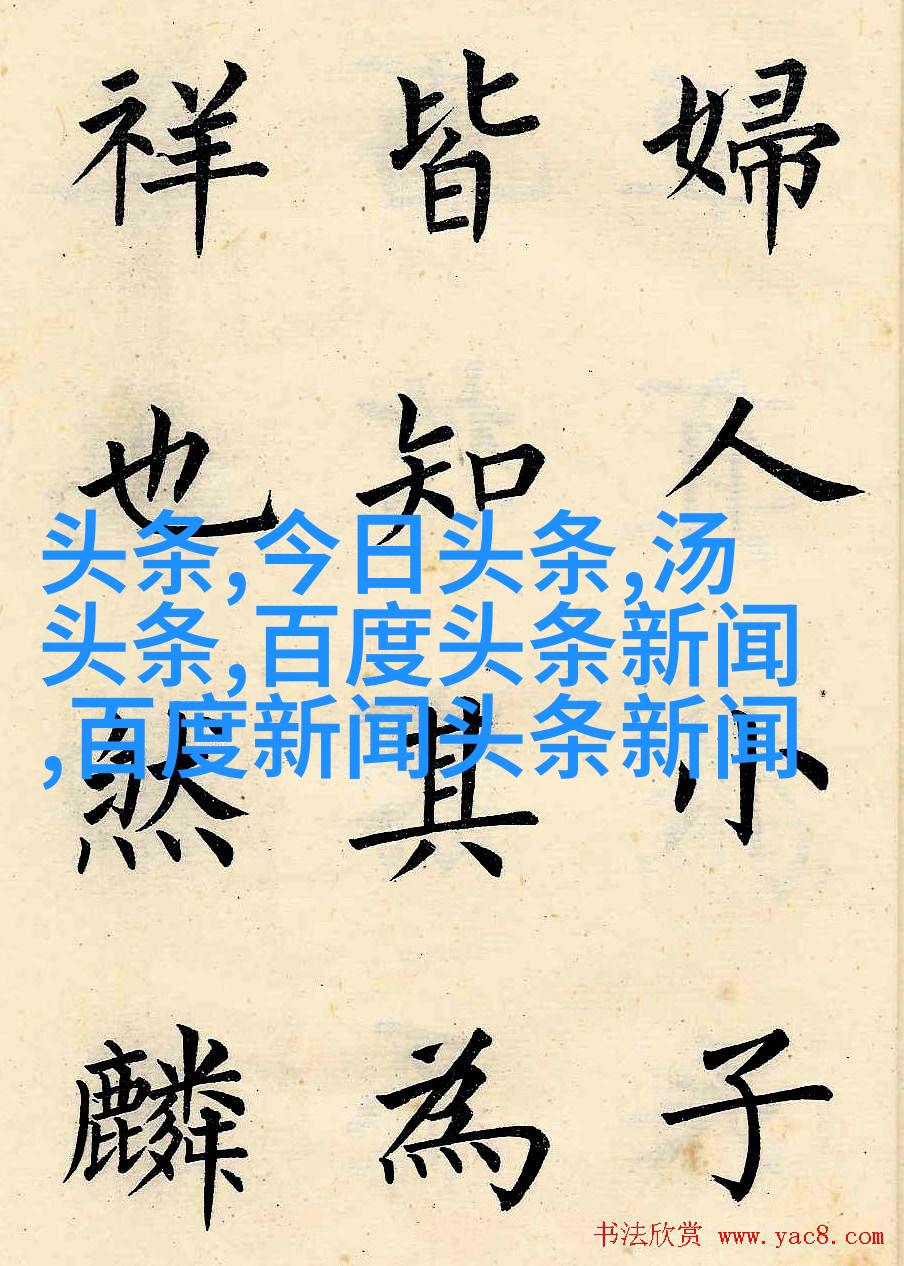 婦人小子
皆知其為
祥也然麟
头条,今日头条,汤
头条,百度头条新闻
,百度新闻头条新闻
书法欣赏 www.yac8.com